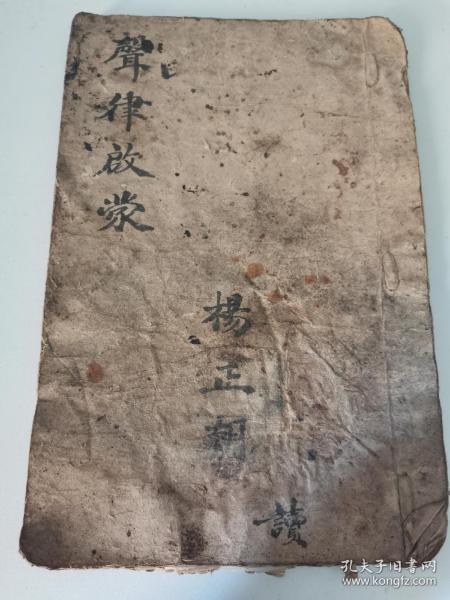 聲律啟蒙
楊正朝
讀
孔夫子旧书网
www.kongfz.com